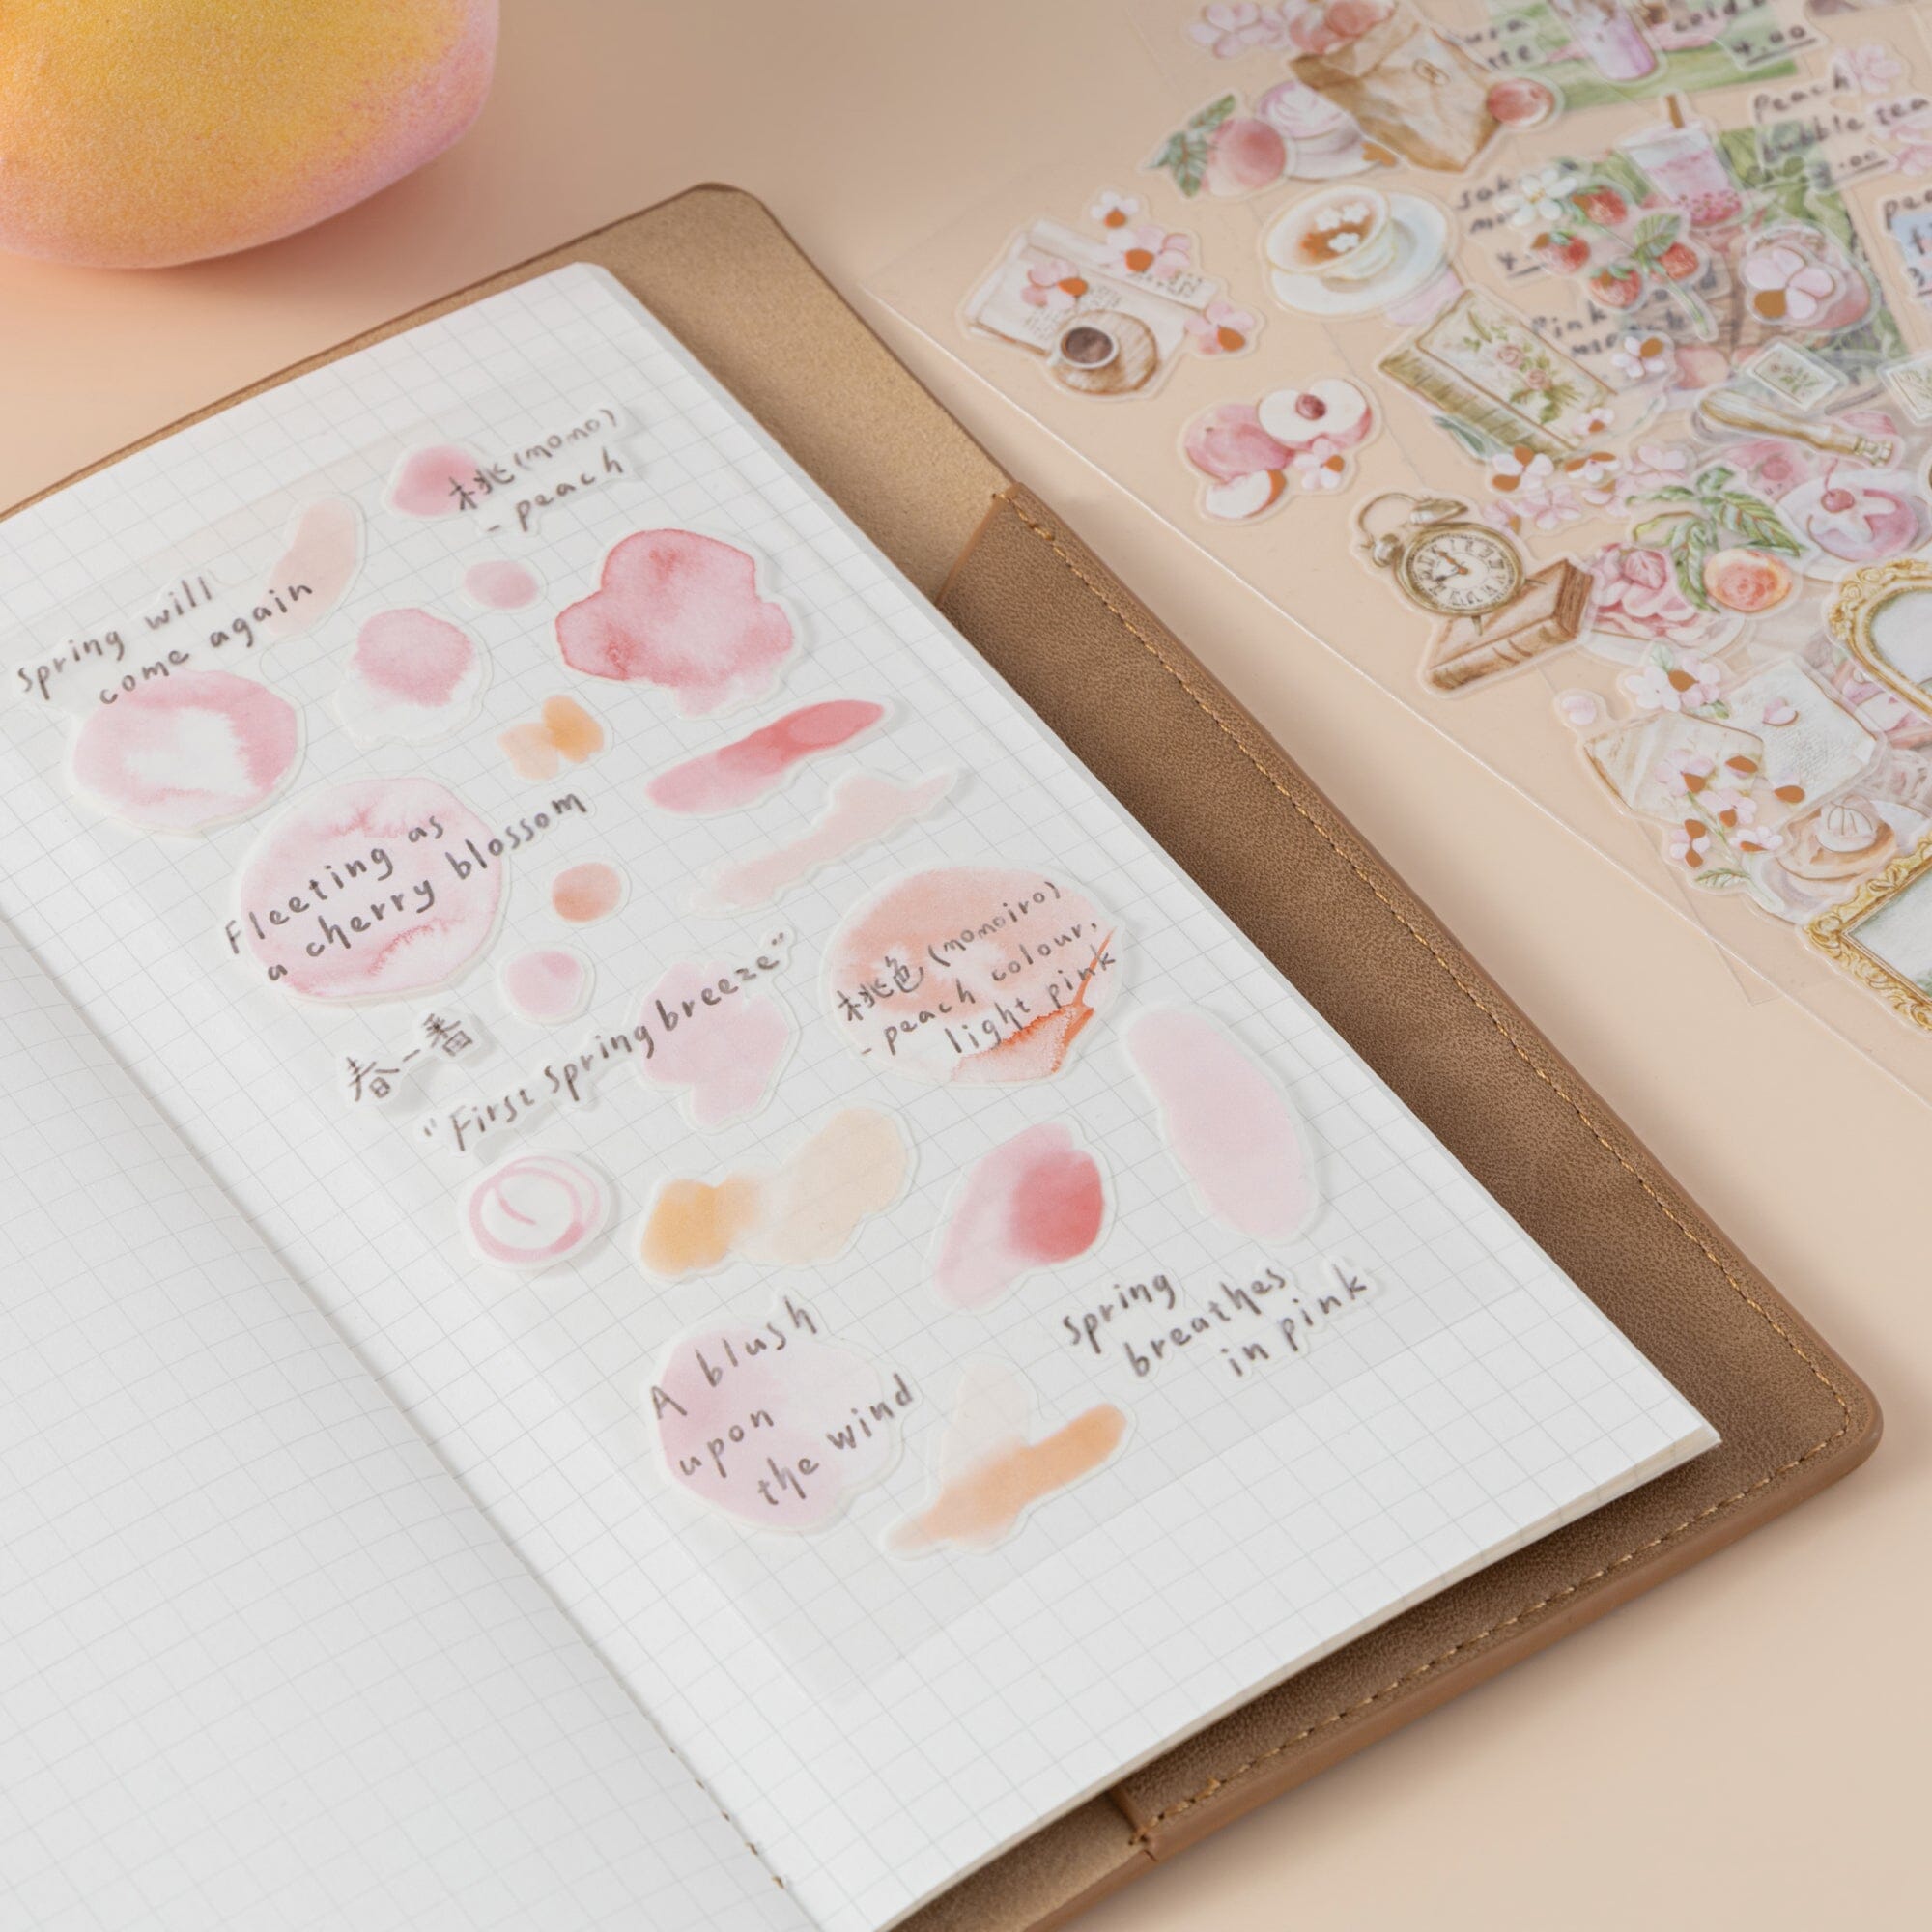 桃(momo)
- peach
Spring will
come again
Fleeting as
a cherry blossom
桃色(momoiro)
- peach colour,
light pink
春一番
"First Spring breeze"
Spring
breathes
in pink
A blush
upon
the wind
4.00
Peach
Pink